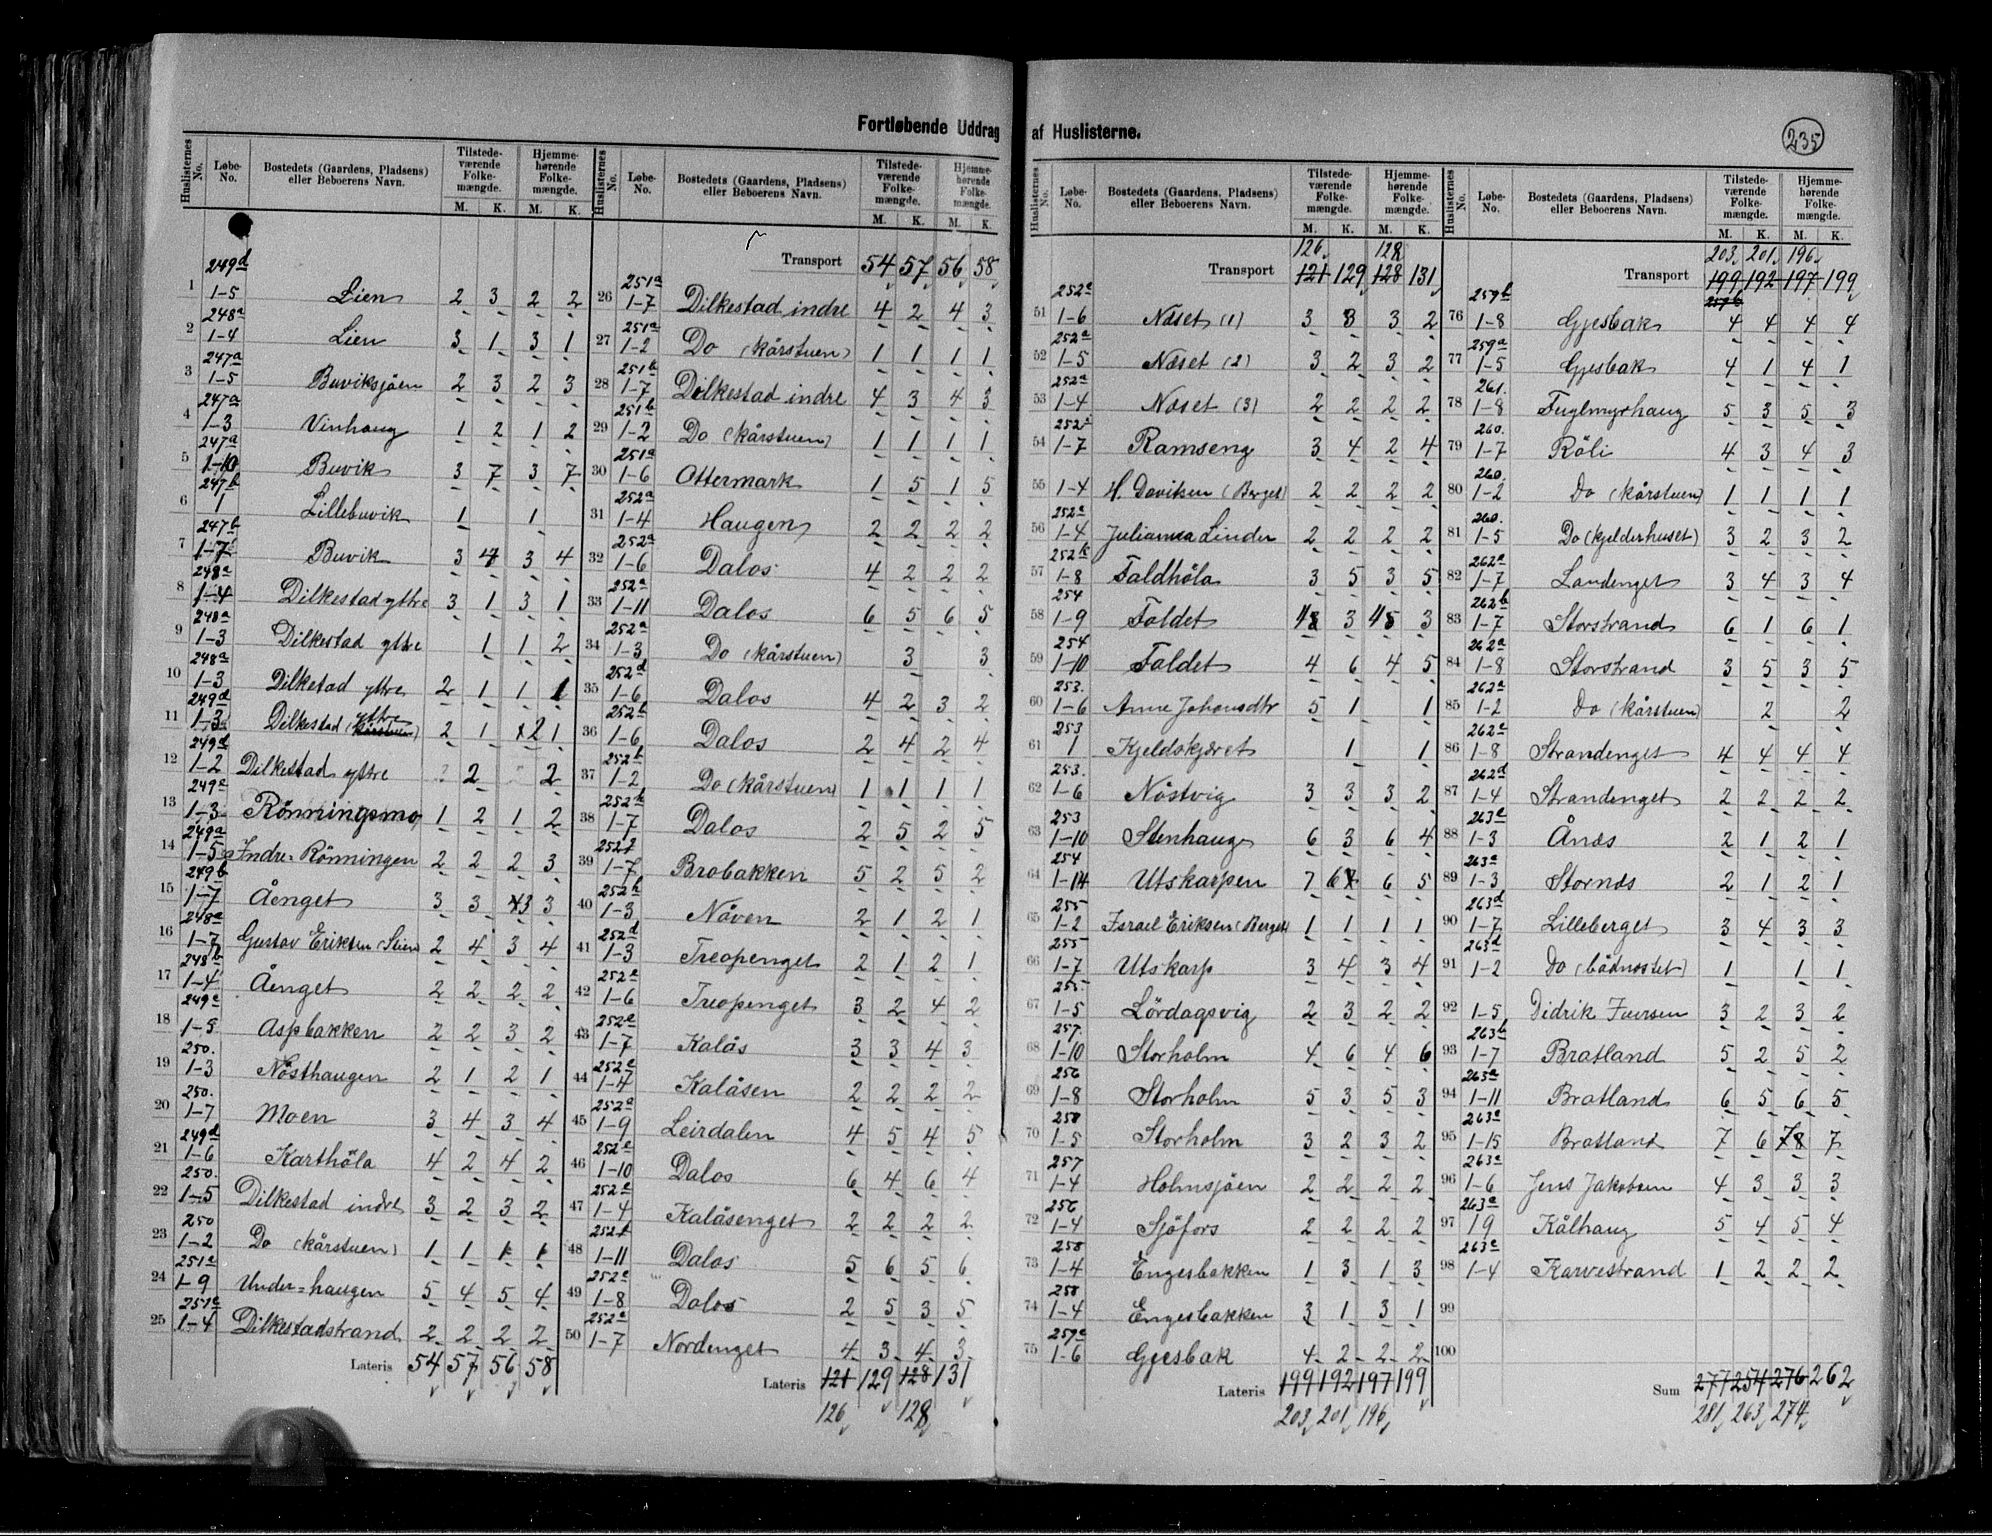 Fortløbende Uddrag af Huslisterne.
235
Huslisternes No. Løbe-No. Bostedets (Gaardens, Pladsens) eller Beboerens Navn. Tilstedeværende Folkemængde. M. K. Hjemmehørende Folkemængde. M. K.
249d
1 1-5 Lien 2 3 2 2
248a
2 1-4 Lien 3 1 3 1
247a
3 1-5 Buviksjøen 2 3 2 3
247a
4 1-3 Vinhaug 1 2 1 2
247a
5 1-10 Buvik 3 7 3 7
247b
6 1 Lillebuvik 1 1
247b
7 1-7 Buvik 3 4 3 4
248a
8 1-4 Dilkestad yttre 3 1 3 1
248a
9 1-3 Dilkestad yttre 1 1 2
248a
10 1-3 Dilkestad yttre 2 1 1 1
249d
11 1-3 Dilkestad yttre (kårstuen) 2 1 2 1
249d
12 1-2 Dilkestad yttre 2 2
249a
13 1-3 Rönningsmo 1 2 1 2
249a
14 1-5 Indre-Rönningen 2 2 2 3
249b
15 1-7 Åenget 3 3 3 3
248a
16 1-7 Gustav Eriksen (Seines) 2 4 3 4
248b
17 1-4 Åenget 2 2 2 2
249c
18 1-5 Aspbakken 2 2 3 2
250.
19 1-3 Nösthaugen 2 1 2 1
250.
20 1-7 Moen 3 4 3 4
249d
21 1-6 Karthöla 4 2 4 2
250.
22 1-5 Dilkestad indre 3 2 3 2
250
23 1-2 Do (kårstuen) 1 1 1 1
251c
24 1-9 Under-haugen 5 4 5 4
251c
25 1-4 Dilkestadstrand 2 2 2 2
Lateris 54 57 56 58
Huslisternes No. Løbe-No. Bostedets (Gaardens, Pladsens) eller Beboerens Navn. Tilstedeværende Folkemængde. M. K. Hjemmehørende Folkemængde. M. K.
Transport 54 57 56 58
251a
26 1-7 Dilkestad indre 4 2 4 3
251a
27 1-2 Do (kårstuen) 1 1 1 1
251b
28 1-7 Dilkestad indre 4 3 4 3
251b
29 1-2 Do (kårstuen) 1 1 1 1
251a
30 1-6 Ottermark 1 5 1 5
252a
31 1-4 Haugen 2 2 2 2
252a
32 1-6 Dalos 4 2 2 2
252a
33 1-11 Dalos 6 5 6 5
252a
34 1-3 Do (kårstuen) 3 3
252d
35 1-6 Dalos 4 2 3 2
252b
36 1-6 Dalos 2 4 2 4
252b
37 1-2 Do (kårstuen) 1 1 1 1
252b
38 1-7 Dalos 2 5 2 5
252f
39 1-7 Brobakken 5 2 5 2
252b
40 1-3 Nåven 2 1 2 1
252d
41 1-3 Treopenget 2 1 2 1
252a
42 1-6 Treopenget 3 2 4 2
252e
43 1-7 Kalås 3 3 4 3
252e
44 1-4 Kalåsen 2 2 2 2
252a
45 1-9 Leirdalen 4 5 4 5
252e
46 1-10 Dalos 6 4 6 4
252e
47 1-4 Kalåsenget 2 2 2 2
252f
48 1-11 Dalos 5 6 5 6
252e
49 1-8 Dalos 2 5 3 5
252a
50 1-7 Nordenget 4 3 4 3
Lateris 121 129 128 131
126 128
Huslisternes No. Løbe-No. Bostedets (Gaardens, Pladsens) eller Beboerens Navn. Tilstedeværende Folkemængde. M. K. Hjemmehørende Folkemængde. M. K.
126 128
Transport 121 129 128 131
252a
51 1-6 Næset (1) 3 3 3 2
252a
52 1-5 Næset (2) 3 2 3 2
252a
53 1-4 Næset (3) 2 2 2 2
252c
54 1-7 Ramseng 3 4 2 4
55 1-4 H. Daviksen (Berget) 2 2 2 2
252a
56 1-4 Julianna Linder 2 2 2 2
252b
57 1-8 Faldhöla 3 5 3 5
254
58 1-9 Faldet 3 3
254
59 1-10 Faldet 4 6 4 5
253.
60 1-6 Anne Johansdtr 5 1 1
253
61 1 Kjeldskjæret 1 1
253.
62 1-6 Nöstvig 3 3 3 2
253
63 1-10 Stenhaug 6 3 6 4
254
64 1-14 Utskarpen 7 6 6 5
255
65 1-2 Israel Eriksen (Berget) 1 1 1 1
255
66 1-7 Utskarp 3 4 3 4
255.
67 1-5 Lördagsvig 2 3 2 2
257.
68 1-10 Storholm 4 6 4 6
256
69 1-8 Storholm 5 3 5 3
258
70 1-5 Storholm 3 2 3 2
257
71 1-4 Holmsjöen 2 2 2 2
256
72 1-4 Sjöfors 2 2 2 2
258
73 1-4 Engesbakken 1 3 1 3
258
74 1-4 Engesbakken 3 1 3 1
259a
75 1-6 Gjesbak 4 2 2 2
Lateris 199 192 197 199
203 201 196
Huslisternes No. Løbe-No. Bostedets (Gaardens, Pladsens) eller Beboerens Navn. Tilstedeværende Folkemængde. M. K. Hjemmehørende Folkemængde. M. K.
203 201 196
Transport 199 192 197 199
259b 259b
76 1-8 Gjesbak 4 4 4 4
259a
77 1-5 Gjesbak 4 1 4 1
261.
78 1-8 Fuglmyrhaug 5 3 5 3
260.
79 1-7 Röli 4 3 4 3
260.
80 1-2 Do (kårstuen) 1 1 1 1
260.
81 1-5 Do (kjelderhuset) 3 2 3 2
262a
82 1-7 Landenget 3 4 3 4
262b
83 1-7 Storstrand 6 1 6 1
262a
84 1-8 Storstrand 3 5 3 5
262a
85 1-2 Do (kårstuen) 2 2
262a
86 1-8 Strandenget 4 4 4 4
262d
87 1-4 Strandenget 2 2 2 2
263e
88 1-3 Ånes 2 1 2 1
263a
89 1-3 Stornes 2 1 2 1
263d
90 1-7 Lilleberget 3 4 3 3
263d
91 1-2 Do (bådnostet) 1 1 1
92 1-5 Didrik Iversen 3 2 3 2
263b
93 1-7 Bratland 5 2 5 2
263a
94 1-11 Bratland 6 5 6 5
263a
95 1-15 Bratland 7 6 8 7
263a
96 1-6 Jens Jakobsen 4 3 3 3
263a
97 1 9 Kålhaug 5 4 5 4
263e
98 1-4 Karvestrand 1 2 2 2
99
100
Sum 277 254 276 262
281 263 274